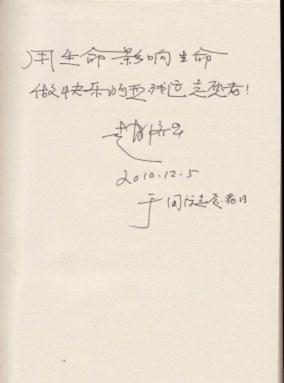 用生命影响生命
做快乐的亚残运志愿者！
2010.12.5
于国际志愿者日